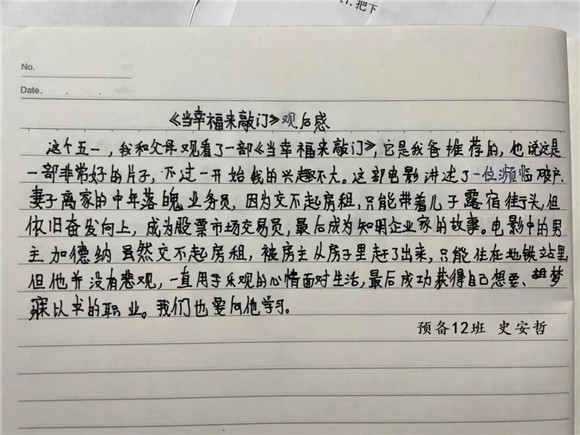 17. 把下
No.
Date.
《当幸福来敲门》观后感
这个五一，我和父母观看了一部《当幸福来敲门》，它是我爸推荐的，他说这是
一部非常好的片子，不过一开始我的兴趣不大。这部电影讲述了一位濒临破产、
妻子离家的中年落魄业务员，因为交不起房租，只能带着儿子露宿街头，但
依旧奋发向上，成为股票市场交易员，最后成为知明企业家的故事。电影中的男
主加德纳虽然交不起房租，被房主从房子里赶了出来，只能住在地铁站里，
但他并没有悲观，一直用乐观的心情面对生活，最后成功获得自己想要、梦
寐以求的职业。我们也要向他学习。
预备12班 史安哲